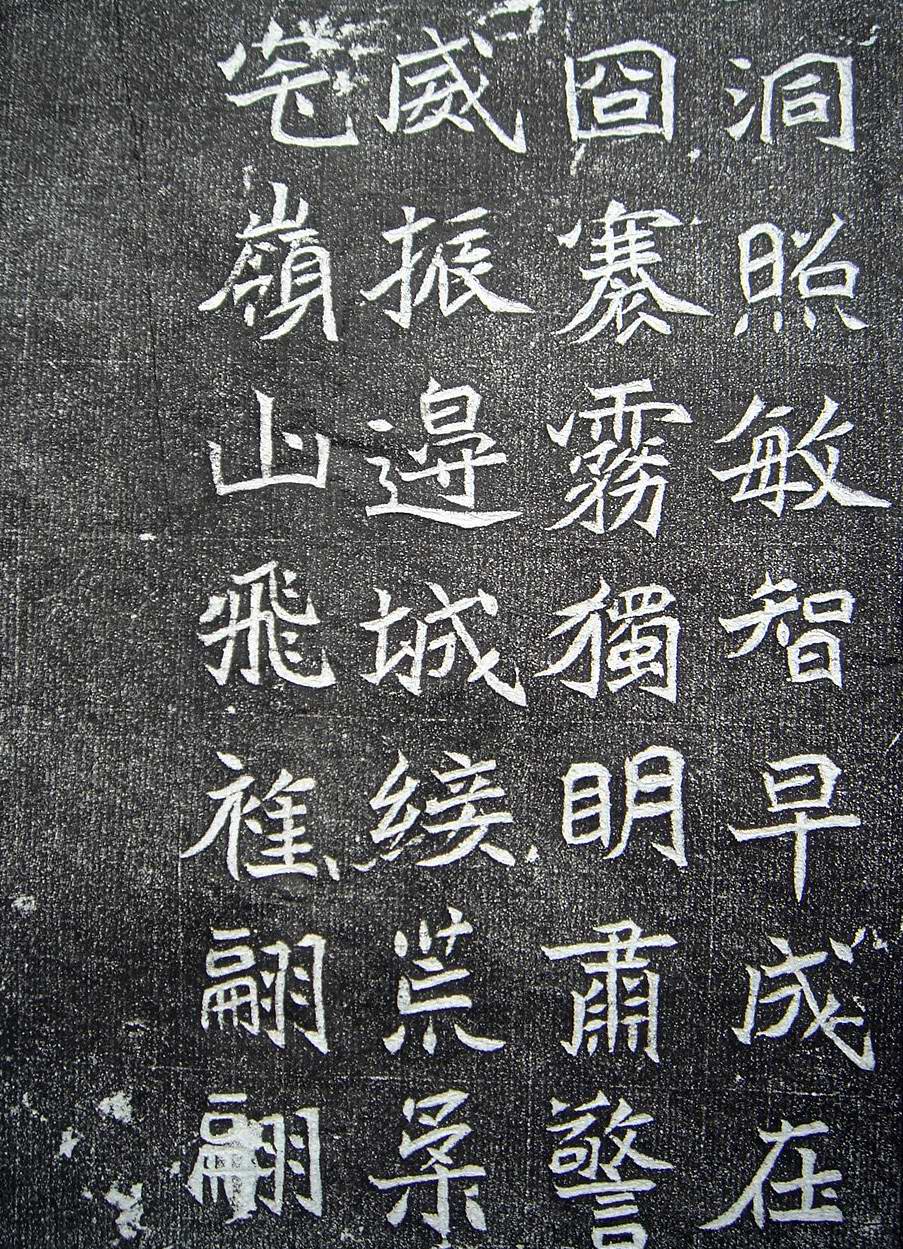 洞照敏智早成在
囧褰霧獨明肅警
威振邊城荒
嶺山飛翩翩